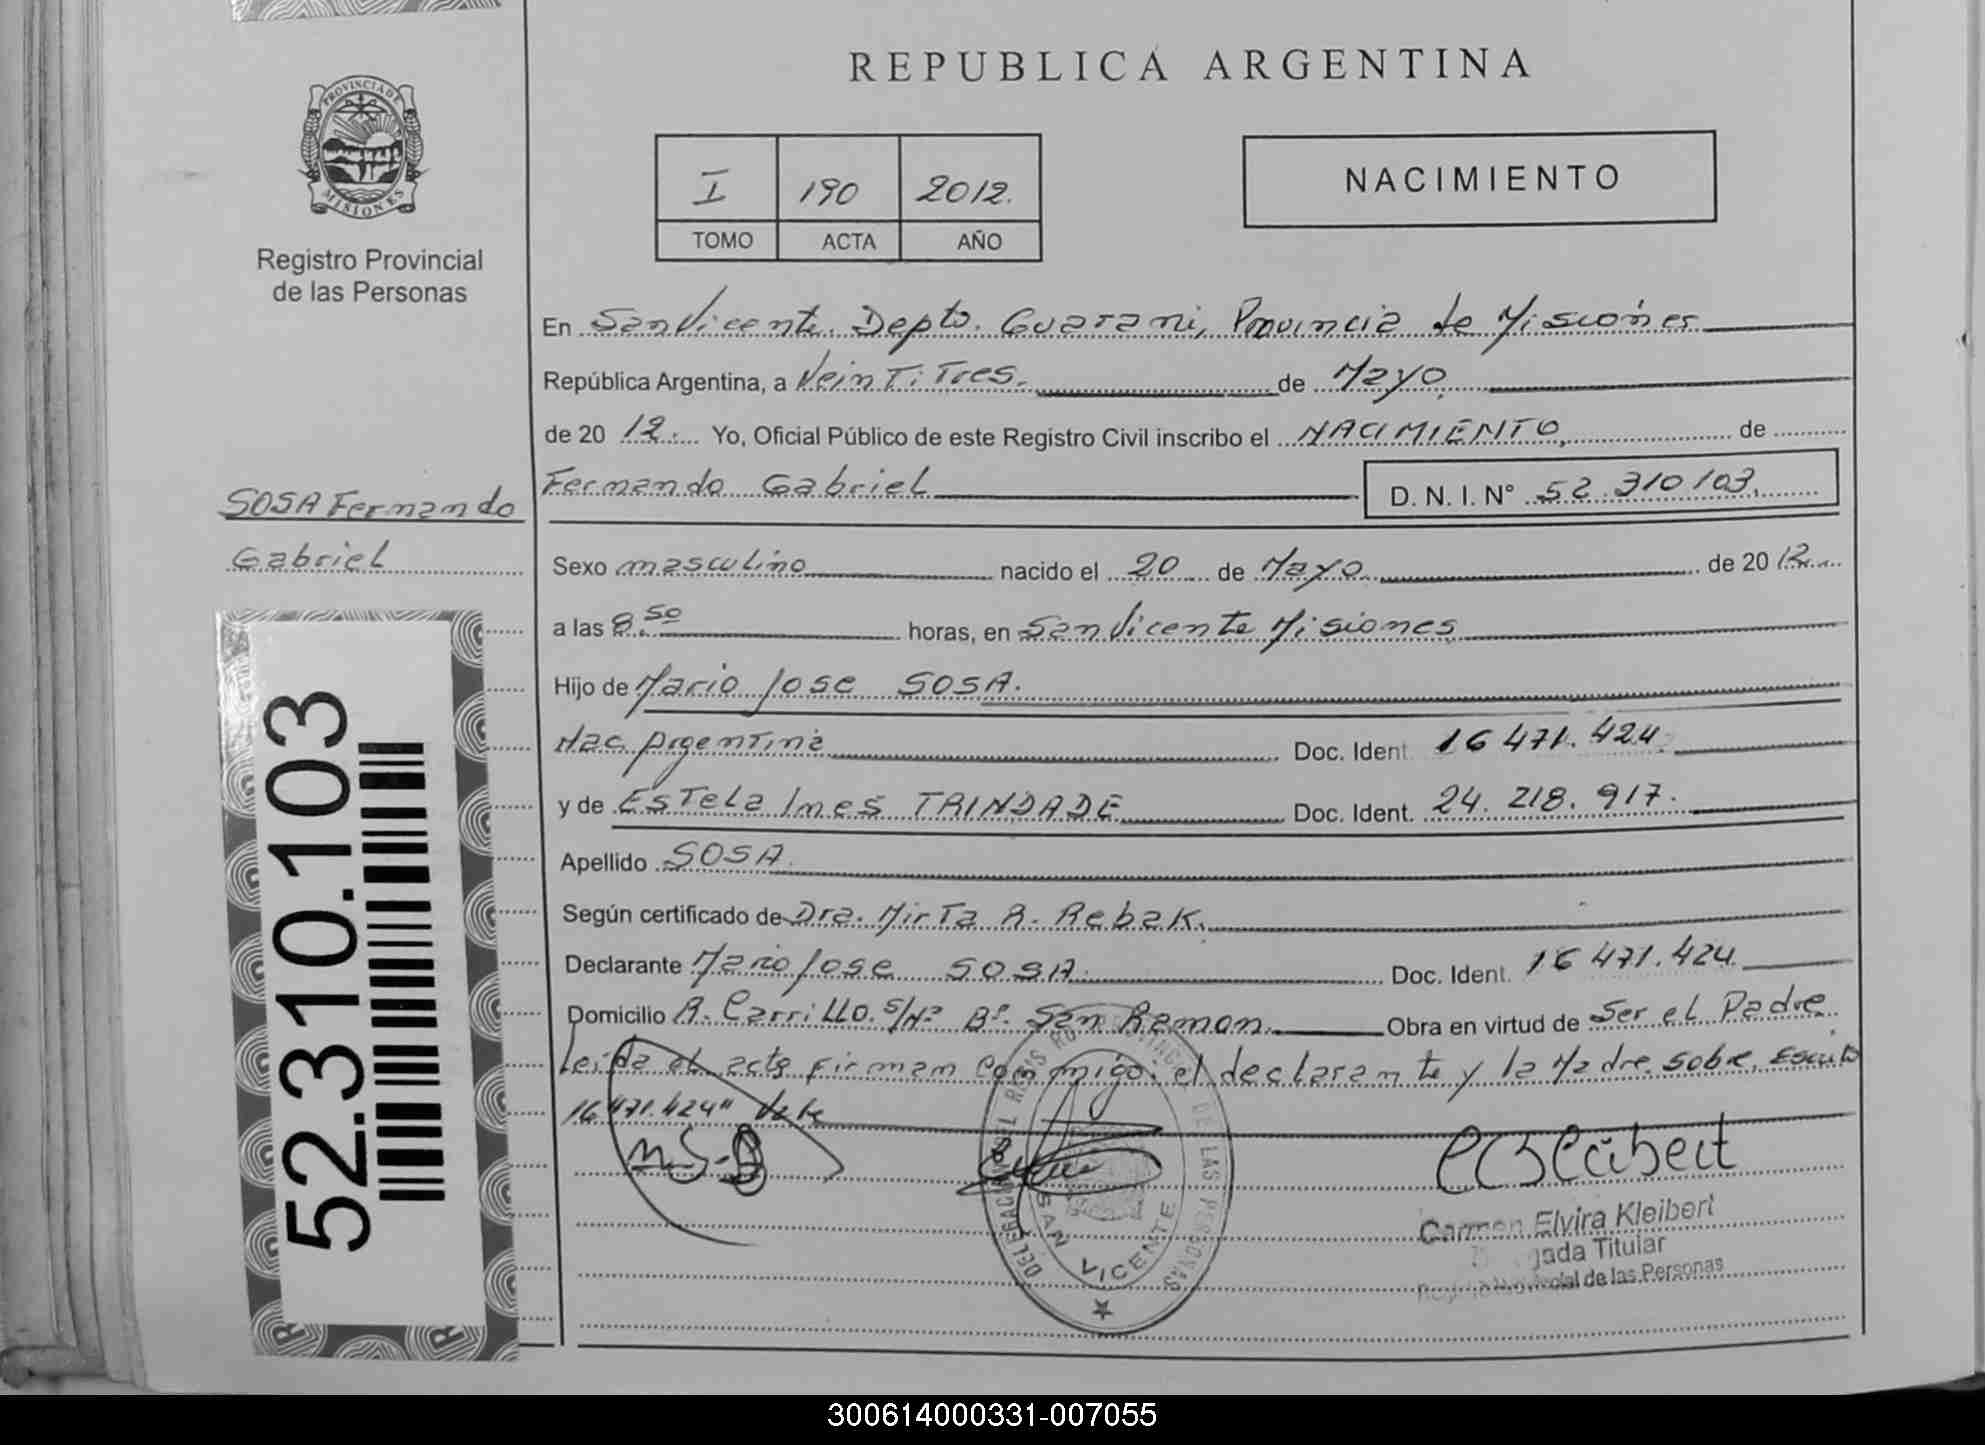 REPUBLICA ARGENTINA
PROVINCIA DE
MISIONES
Registro Provincial
de las Personas
I 190 2012.
TOMO ACTA AÑO
NACIMIENTO
En San Vicente. Depto. Guarani, Provincia de Misiones
República Argentina, a Vein Ti Tres. de Mayo.
de 20 12. Yo, Oficial Público de este Registro Civil inscribo el NACIMIENTO, de
Fernando Gabriel D. N. I. N° 52.310103.
SOSA Fernando
Gabriel
Sexo masculino nacido el 20 de Mayo de 20 12.
a las 8.50 horas, en San Vicente Misiones
Hijo de Mario Jose SOSA.
Nac. Argentina Doc. Ident. 16 471.424.
y de Estela Ines TRINDADE Doc. Ident. 24.218.917.
Apellido SOSA.
Según certificado de Dra. Mirta R. Rebak.
Declarante Mario Jose SOSA Doc. Ident. 16 471.424.
Domicilio R. Carrillo. S/Nº Bº. San Ramon. Obra en virtud de Ser el Padre
Leida el acta firman conmigo. el declarante y la Madre. sobre.
16 471.424" Vale
52.310.103
SAN VICENTE
DE LAS PERSONAS
Carmen Elvira Kleibert
Titular
de las Personas
300614000331-007055